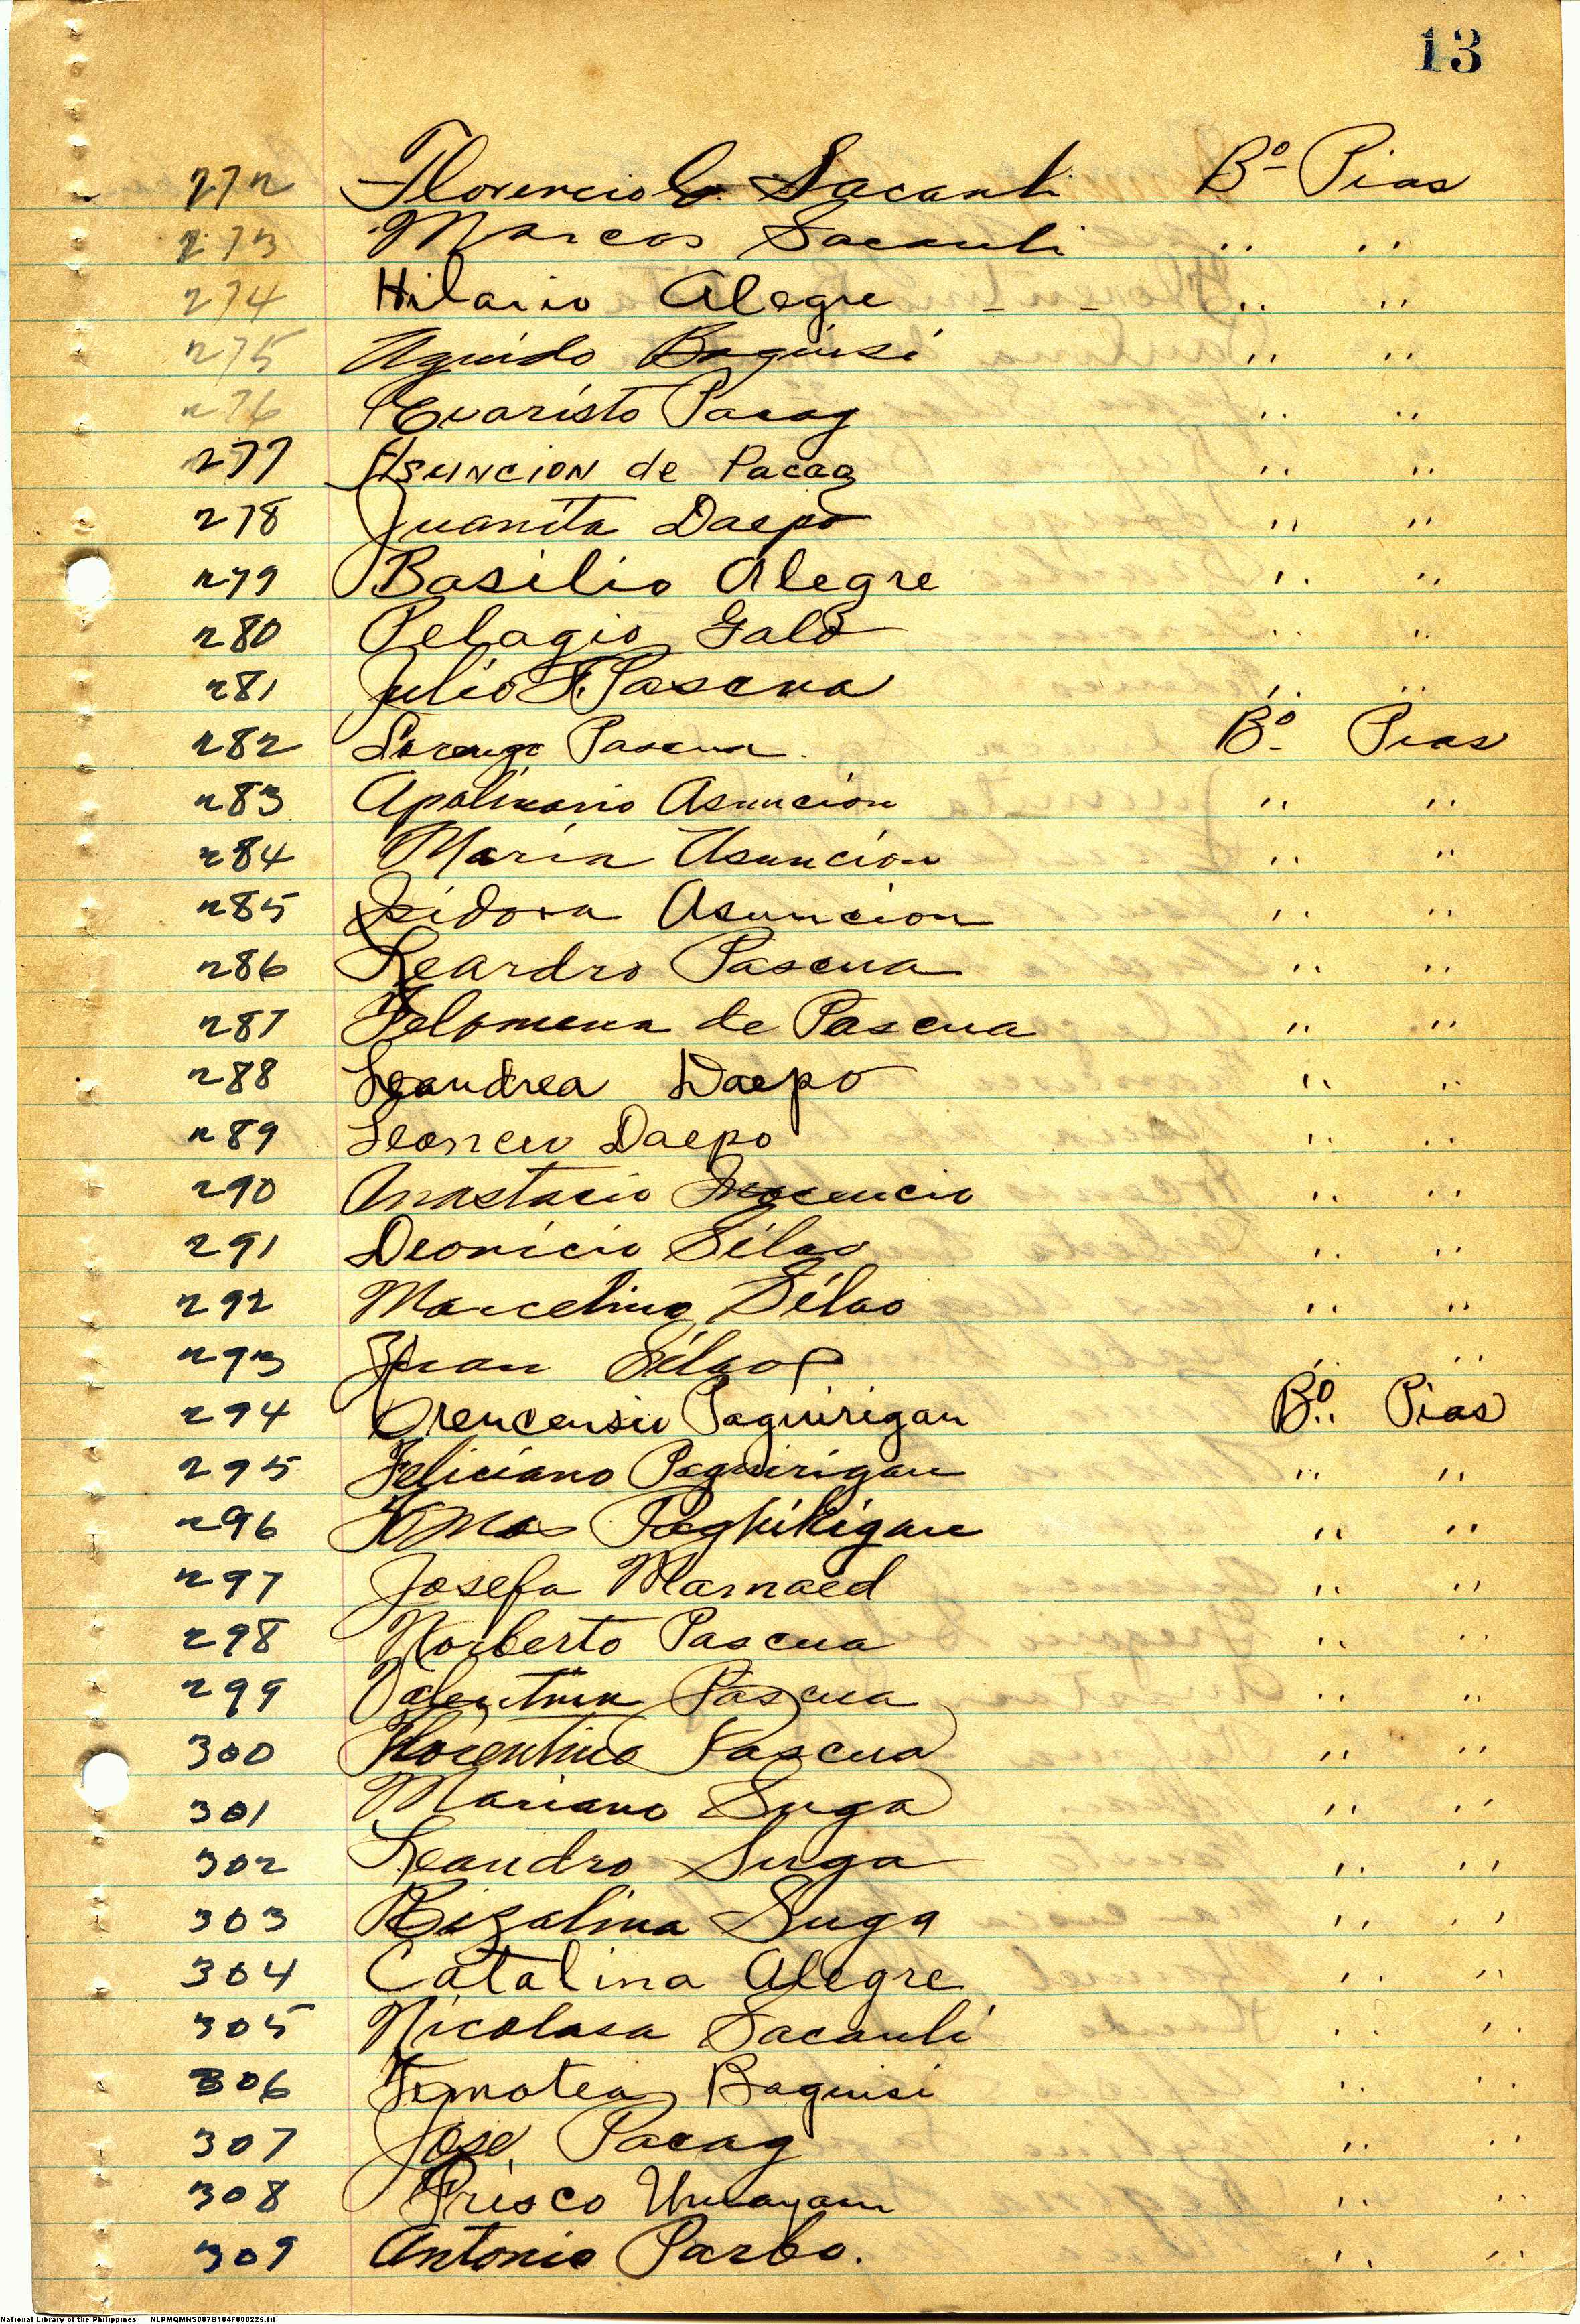 13
272 Florencio G. Sacanli Bo Pias
273 Marcos Sacanli " "
274 Hilario Alegre - - " "
275 Aguido Baguisi " "
276 Evaristo Pacag " "
277 Asuncion de Pacag " "
278 Juanita Daepo " "
279 Basilio Alegre " "
280 Pelagio Galo " "
281 Julio F. Pascua " "
282 Lorenzo Pascua Bo Pias
283 Apolinario Asuncion " "
284 Maria Asuncion " "
285 Isidora Asuncion " "
286 Leardro Pascua " "
287 Felomena de Pascua " "
288 Leandrea Daepo " "
289 Leoncio Daepo " "
290 Anastacio Inocencio " "
291 Deonicio Silao " "
292 Marcelino Silao " "
293 Juan Silao " "
294 Orencensio Paguirigan Bo Pias
295 Feliciano Paguirigan " "
296 Tomas Paghirigan " "
297 Josefa Marnaed " "
298 Norberto Pascua " "
299 Valentina Pascua " "
300 Florentino Pascua " "
301 Mariano Suga " "
302 Leandro Suga " "
303 Rizalina Suga " "
304 Catalina Alegre " "
305 Nicolasa Sacanli " "
306 Temotea Baguisi " "
307 Jose Pacag " "
308 Prisco Umayam " "
309 Antonio Parbo. " "
National Library of the Philippines NLPMQMNS007B104F000225.tif